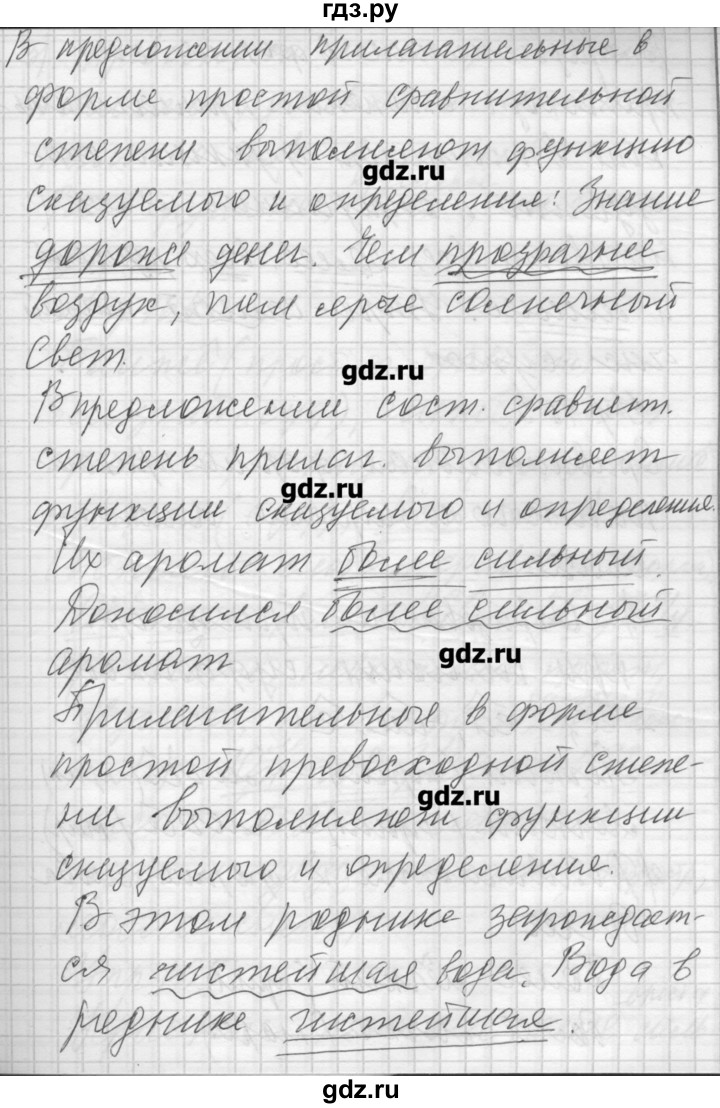 гдз.ру
В предложении прилагательные в
форме простой сравнительной
степени выполняют функцию
gdz.ru
сказуемого и определения: Знание
дороже денег. Чем прозрачнее
воздух, тем ярче солнечный
свет.
gdz.ru
В предложении сост. сравнит.
степень прилаг. выполняет
gdz.ru
функции сказуемого и определения.
Их аромат более сильный.
Доносился более сильный
gdz.ru
аромат
Прилагательные в форме
простой превосходной степе-
gdz.ru
ни выполняют функции
сказуемого и определения.
В этом роднике зарождает-
ся чистейшая вода. Вода в
роднике чистейшая.
gdz.ru